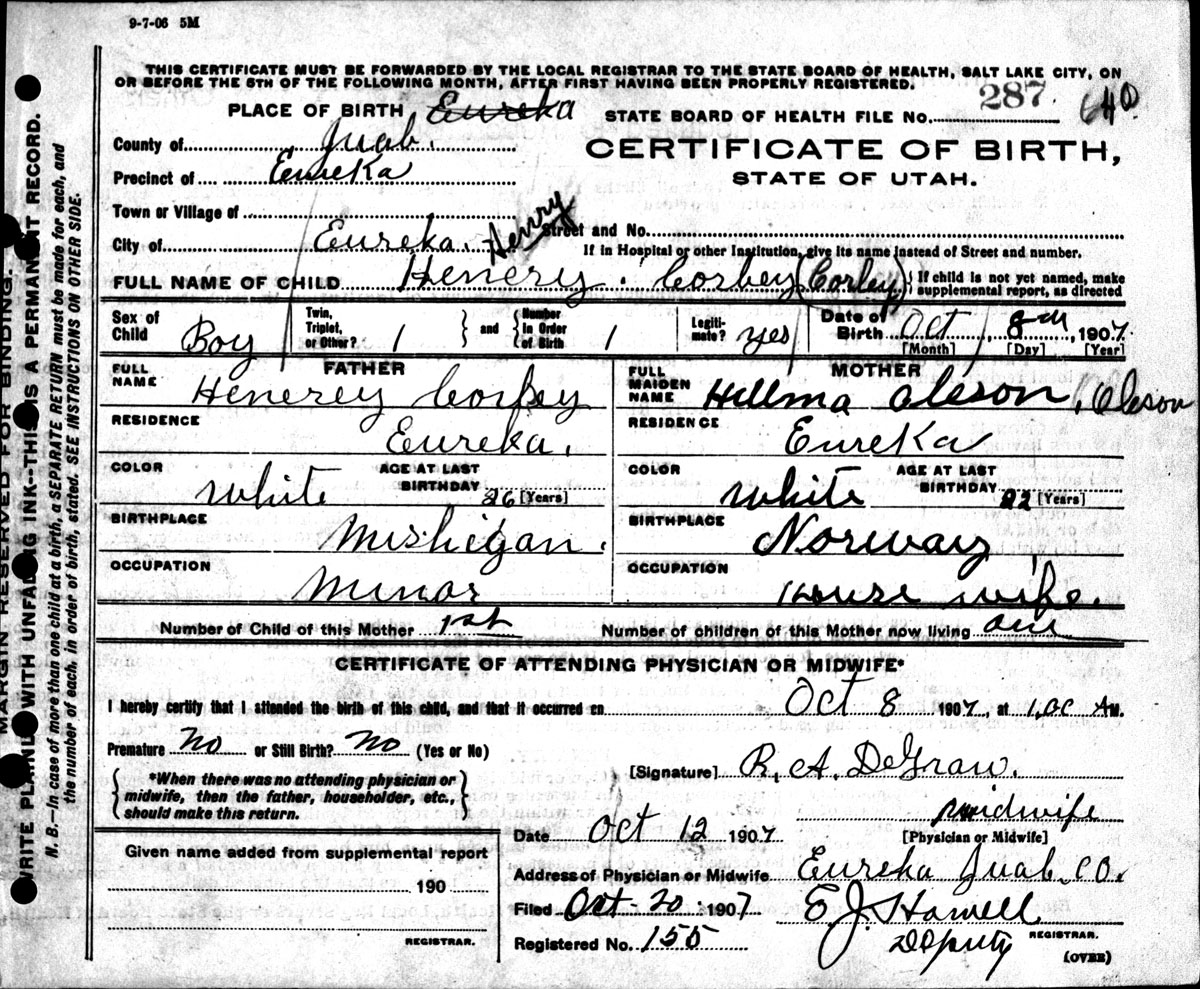 9-7-06 5M
THIS CERTIFICATE MUST BE FORWARDED BY THE LOCAL REGISTRAR TO THE STATE BOARD OF HEALTH, SALT LAKE CITY, ON
OR BEFORE THE 5TH OF THE FOLLOWING MONTH, AFTER FIRST HAVING BEEN PROPERLY REGISTERED.
PLACE OF BIRTH Eureka
STATE BOARD OF HEALTH FILE NO. 287. 640
County of Juab.
CERTIFICATE OF BIRTH,
Precinct of Eureka
STATE OF UTAH.
Town or Village of
Street and No.
City of Eureka. Henry
If in Hospital or other Institution, give its name instead of Street and number.
FULL NAME OF CHILD Henery. Corbey (Corley) If child is not yet named, make supplemental report, as directed
Sex of Child Boy Twin, Triplet, or Other? 1 and Number in Order of Birth 1 Legitimate? yes Date of Birth Oct 8th, 1907.
[Month] [Day] [Year]
FATHER MOTHER
FULL NAME Henerey Corbey FULL MAIDEN NAME Hillma Oleson, Oleson
RESIDENCE Eureka. RESIDENCE Eureka
COLOR White AGE AT LAST BIRTHDAY 26 [Years] COLOR White AGE AT LAST BIRTHDAY 22 [Years]
BIRTHPLACE Mishigan. BIRTHPLACE Norway
OCCUPATION Minor OCCUPATION House wife.
Number of Child of this Mother 1st Number of children of this Mother now living one
CERTIFICATE OF ATTENDING PHYSICIAN OR MIDWIFE*
I hereby certify that I attended the birth of this child, and that it occurred on Oct 8 1907, at 1,00 AM.
Premature No or Still Birth? No (Yes or No)
*When there was no attending physician or
midwife, then the father, householder, etc.,
should make this return.
[Signature] R. A. DeGraw.
midwife
Date Oct 12 1907 [Physician or Midwife]
Given name added from supplemental report
190
REGISTRAR.
Address of Physician or Midwife Eureka Juab. co.
Filed Oct-20 1907 E J. Howell
REGISTRAR.
Registered No. 155 Deputy
(OVER)
MARGIN RESERVED FOR BINDING.
WRITE PLAINLY WITH UNFADING INK--THIS IS A PERMANENT RECORD.
N. B.—In case of more than one child at a birth, a SEPARATE RETURN must be made for each, and
the number of each, in order of birth, stated. SEE INSTRUCTIONS ON OTHER SIDE.